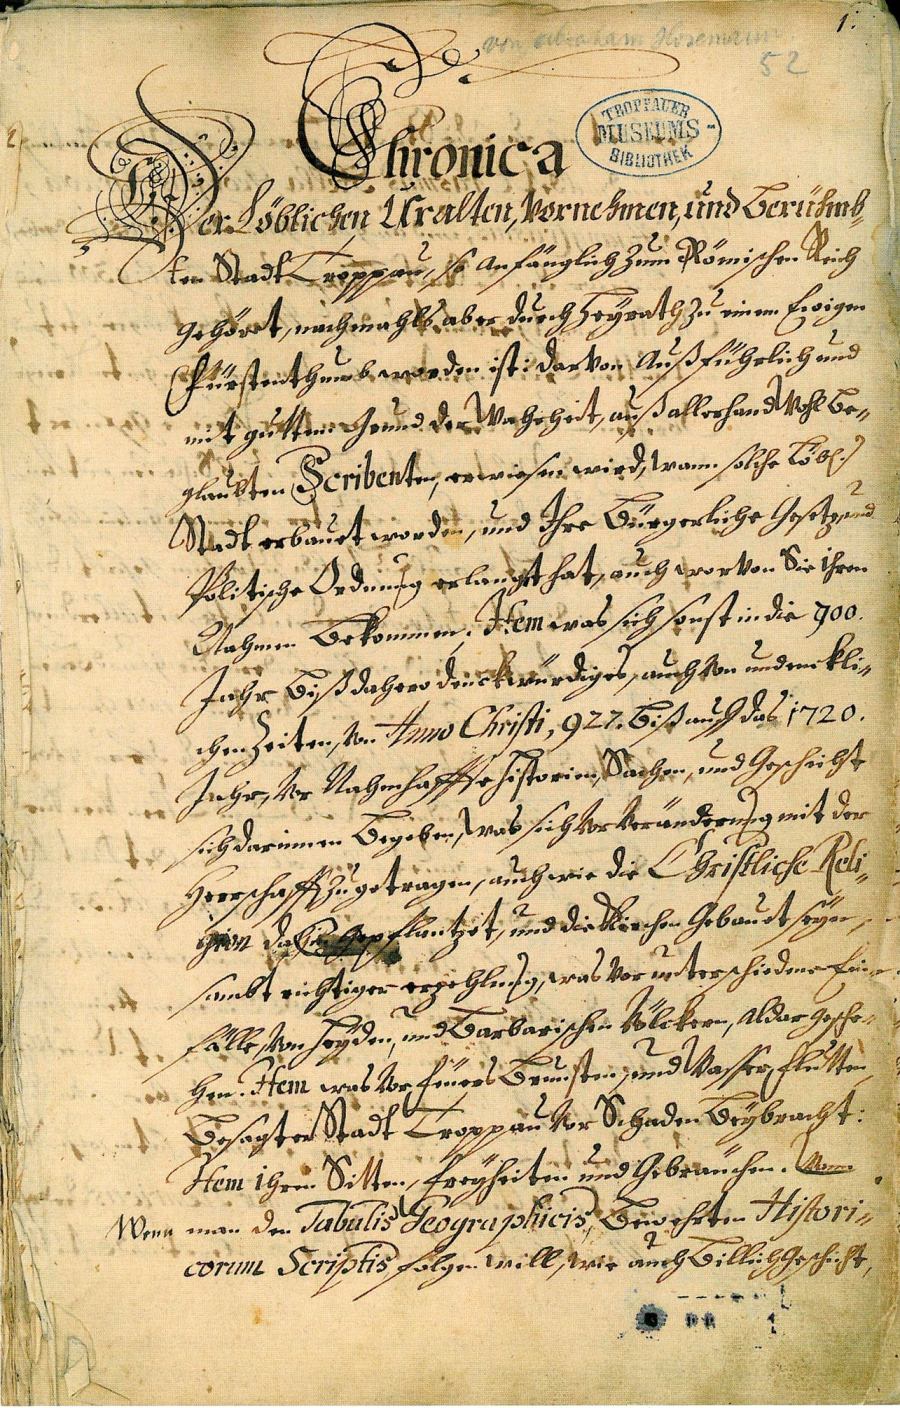 von Abraham Hosemann
1.
52
TROPPAUER
MUSEUMS-
BIBLIOTHEK
Chronica
Der Löblichen Uralten, Vornehmen, und Berühmb-
ten Stadt Troppau, so Anfänglich zum Römischen Reich
gehöret, nachmahls aber durch Heyrath zu einem Ewigen
Fürstenthumb worden ist: darvon Außführlich und
mit guttem Grund der Wahrheit, auß allerhand Wohl Be-
glaubten Scribenten, erwiesen wird, wann solche Löbl:
Stadt erbauet worden, und Ihre Bürgerliche Gesetz, und
Politische Ordnung erlanget hat, auch worvon Sie ihren
Nahmen Bekommen, Item was sich sonst in die 900.
Jahr Biß dahero denckwürdiges, auch von undenckli-
chen Zeiten, von Anno Christi, 927. Biß auff das 1720.
Jahr, vor Nahmhaffte Historien, Sachen, und Geschicht
sich darinnen Begeben, was sich vor Veränderung mit der
Herrschafft zugetragen, auch wie die Christliche Reli-
gion dahin Gepflantzet, und die Kirchen Gebauet seyn,
sambt richtiger erzehlung, was vor unterschiedene Ein-
fälle, von Heyden, und Barbarischen Völckern, Aldar gesche-
hen. Item was vor feuers Brunsten, und Wasser flutten
Besagter Stadt Troppau vor Schaden Beybracht:
Item ihren Sitten, freyheiten und Gebräuchen.
Wenn man den Tabulis Geographicis, Bewehrten Histori-
corum Scriptis, folgen will, wie auch Billich Geschicht,